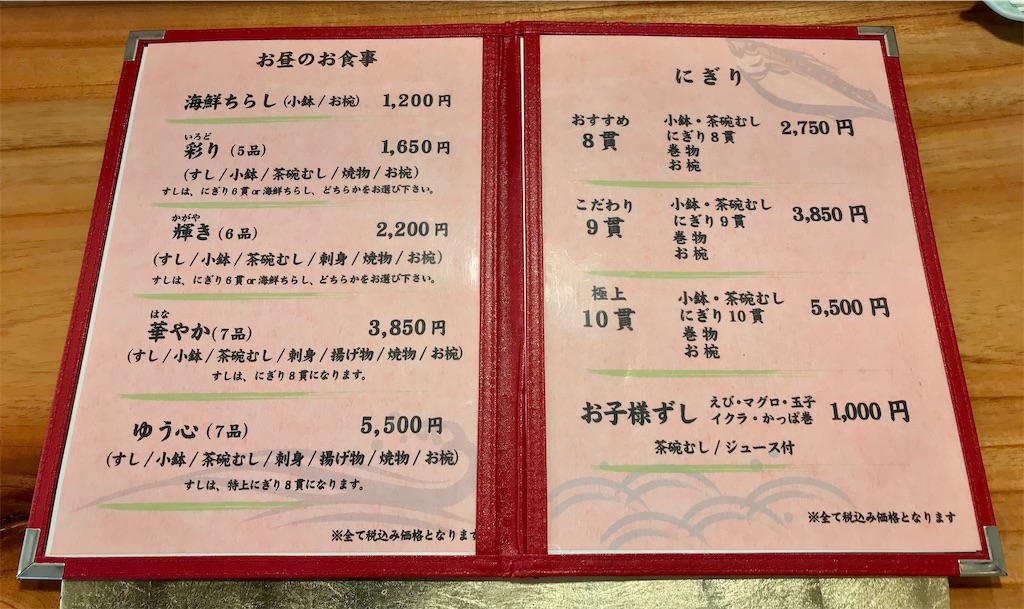 お昼のお食事
海鮮ちらし (小鉢/お椀) 1,200円
いろど
彩り (5品) 1,650円
(すし/小鉢/茶碗むし/焼物/お椀)
すしは、にぎり6貫or海鮮ちらし、どちらかをお選び下さい。
かがや
輝き (6品) 2,200円
(すし/小鉢/茶碗むし/刺身/焼物/お椀)
すしは、にぎり6貫or海鮮ちらし、どちらかをお選び下さい。
はな
華やか(7品) 3,850円
(すし/小鉢/茶碗むし/刺身/揚げ物/焼物/お椀)
すしは、にぎり8貫になります。
ゆう心 (7品) 5,500円
(すし/小鉢/茶碗むし/刺身/揚げ物/焼物/お椀)
すしは、特上にぎり8貫になります。
※全て税込み価格となります
にぎり
おすすめ 小鉢・茶碗むし 2,750円
8貫 にぎり8貫
巻物
お椀
こだわり 小鉢・茶碗むし 3,850円
9貫 にぎり9貫
巻物
お椀
極上 小鉢・茶碗むし 5,500円
10貫 にぎり10貫
巻物
お椀
お子様ずし えび・マグロ・玉子 1,000円
イクラ・かっぱ巻
茶碗むし/ジュース付
※全て税込み価格となります